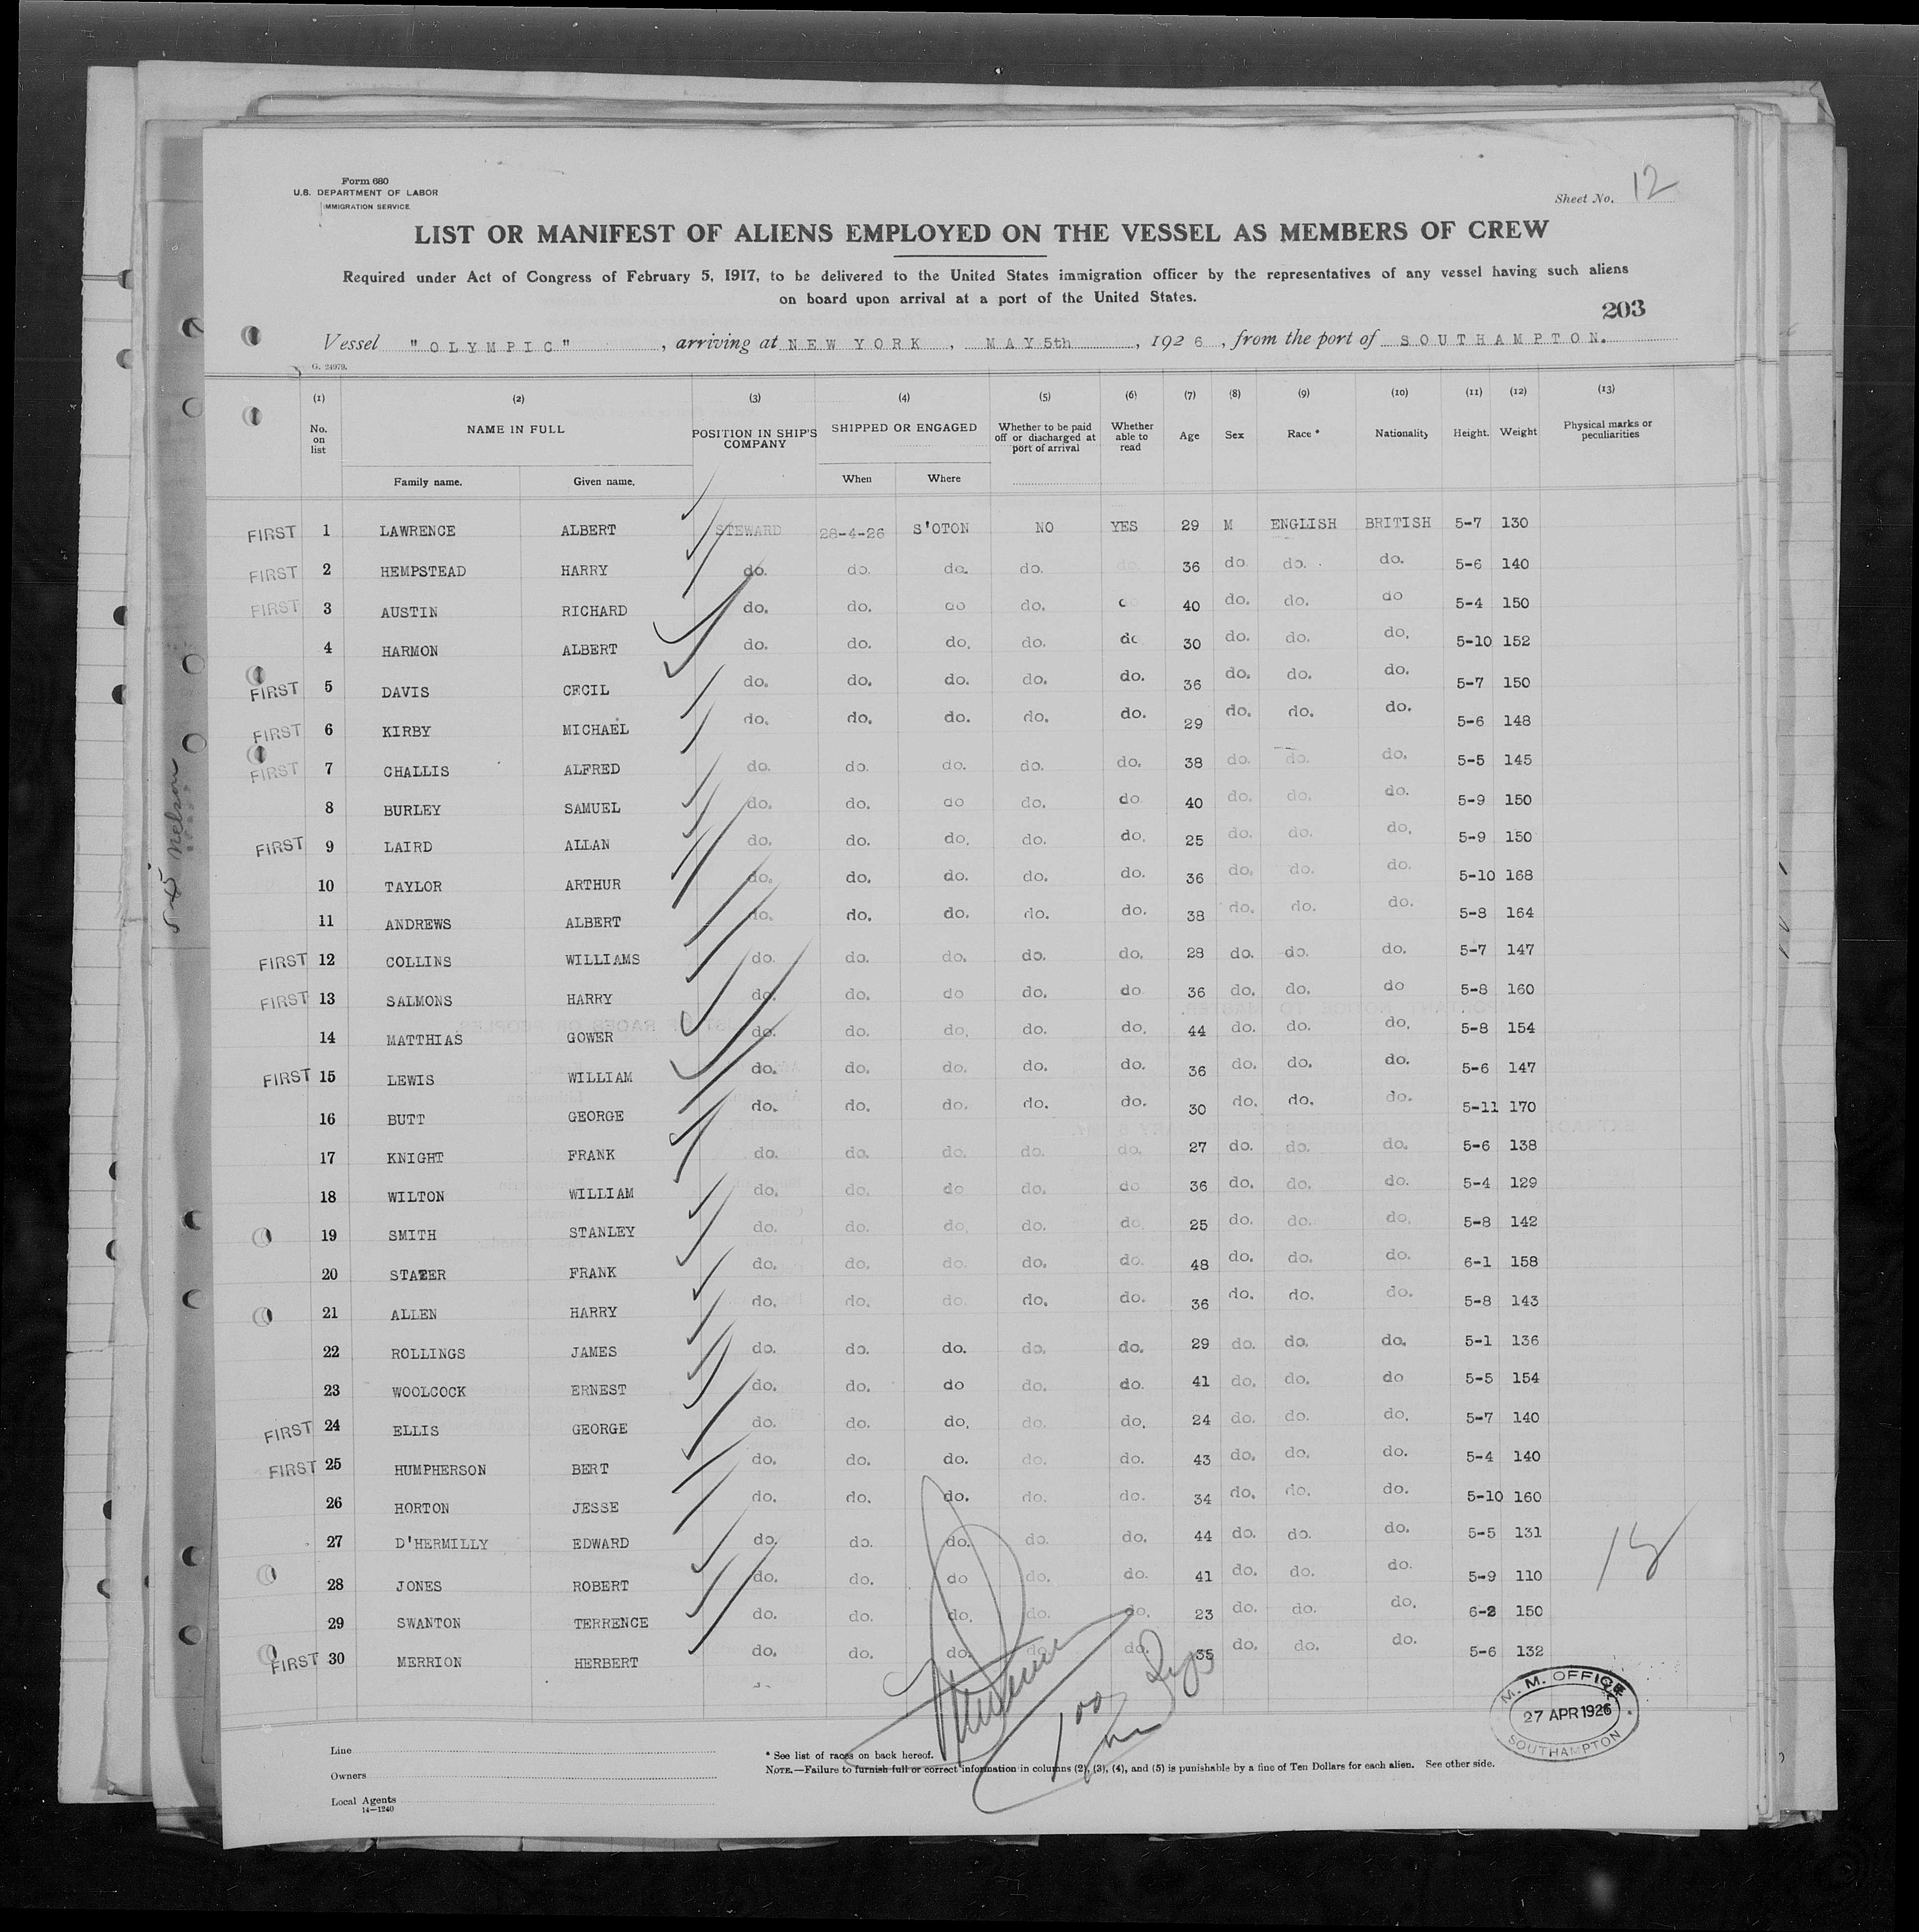 Form 680
U.S. DEPARTMENT OF LABOR
IMMIGRATION SERVICE
Sheet No. 12
LIST OR MANIFEST OF ALIENS EMPLOYED ON THE VESSEL AS MEMBERS OF CREW
Required under Act of Congress of February 5, 1917, to be delivered to the United States immigration officer by the representatives of any vessel having such aliens
on board upon arrival at a port of the United States.
203
Vessel "OLYMPIC", arriving at NEW YORK, MAY 5th, 1926, from the port of SOUTHAMPTON.
G. 24979.
(1) (2) (3) (4) (5) (6) (7) (8) (9) (10) (11) (12) (13)
No. on list NAME IN FULL POSITION IN SHIP'S COMPANY SHIPPED OR ENGAGED Whether to be paid off or discharged at port of arrival Whether able to read Age Sex Race * Nationality Height. Weight Physical marks or peculiarities
Family name. Given name. When Where
FIRST 1 LAWRENCE ALBERT STEWARD 28-4-26 S'OTON NO YES 29 M ENGLISH BRITISH 5-7 130
FIRST 2 HEMPSTEAD HARRY do. do. do. do. do. 36 do. do. do. 5-6 140
FIRST 3 AUSTIN RICHARD do. do. do do. 40 do. do. do 5-4 150
4 HARMON ALBERT do. do. do. do. do 30 do. do. do. 5-10 152
FIRST 5 DAVIS CECIL do. do. do. do. do. 36 do. do. do. 5-7 150
FIRST 6 KIRBY MICHAEL do. do. do. do. do. 29 do. do. do. 5-6 148
FIRST 7 CHALLIS ALFRED do. do. do. do. do. 38 do. do. do. 5-5 145
8 BURLEY SAMUEL do. do. do do. do 40 do. do. do. 5-9 150
FIRST 9 LAIRD ALLAN do. do. do. do. do. 25 do. do. do. 5-9 150
10 TAYLOR ARTHUR do. do. do. do. do. 36 do. do. do. 5-10 168
11 ANDREWS ALBERT do. do. do. do. do. 38 do. do. do. 5-8 164
FIRST 12 COLLINS WILLIAMS do. do. do. do. do. 28 do. do. do. 5-7 147
FIRST 13 SALMONS HARRY do. do. do do. do 36 do. do. do 5-8 160
14 MATTHIAS GOWER do. do. do. do. do. 44 do. do. do. 5-8 154
FIRST 15 LEWIS WILLIAM do. do. do. do. do. 36 do. do. do. 5-6 147
16 BUTT GEORGE do. do. do. do. do. 30 do. do. do. 5-11 170
17 KNIGHT FRANK do. do. do. do. do. 27 do. do. do. 5-6 138
18 WILTON WILLIAM do. do. do do. do 36 do. do. do. 5-4 129
19 SMITH STANLEY do. do. do. do. do. 25 do. do. do. 5-8 142
20 FRANK do. do. do. do. do. 48 do. do. do. 6-1 158
21 ALLEN HARRY do. do. do. do. do. 36 do. do. do. 5-8 143
22 ROLLINGS JAMES do. do. do. do. do. 29 do. do. do. 5-1 136
23 WOOLCOCK ERNEST do. do. do do. do. 41 do. do. do 5-5 154
FIRST 24 ELLIS GEORGE do. do. do. do. do. 24 do. do. do. 5-7 140
FIRST 25 HUMPHERSON BERT do. do. do. do. do. 43 do. do. do. 5-4 140
26 HORTON JESSE do. do. do. do. do. 34 do. do. do. 5-10 160
27 D'HERMILLY EDWARD do. do. do. do. do. 44 do. do. do. 5-5 131
28 JONES ROBERT do. do. do do. do. 41 do. do. do. 5-9 110
29 SWANTON TERRENCE do. do. do. do. do. 23 do. do. do. 6-2 150
FIRST 30 MERRION HERBERT do. do. do. do. do. 35 do. do. do. 5-6 132
M. M. OFFICE
27 APR 1926
SOUTHAMPTON
Line
Owners
Local Agents
14—1240
* See list of races on back hereof.
NOTE.—Failure to furnish full or correct information in columns (2), (3), (4), and (5) is punishable by a fine of Ten Dollars for each alien. See other side.
Nelson